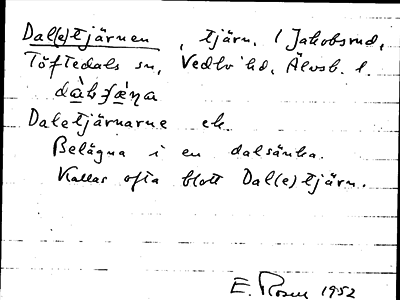 Dal(e)tjärnen, tjärn, i Jakobsrud,
Töftedals sn, Vedbo hd, Älvsb. l.
Daletjärnarne ek.
Belägna i en dalsänka.
Kallas ofta blott Dal(e)tjärn.
E. Rosén 1952